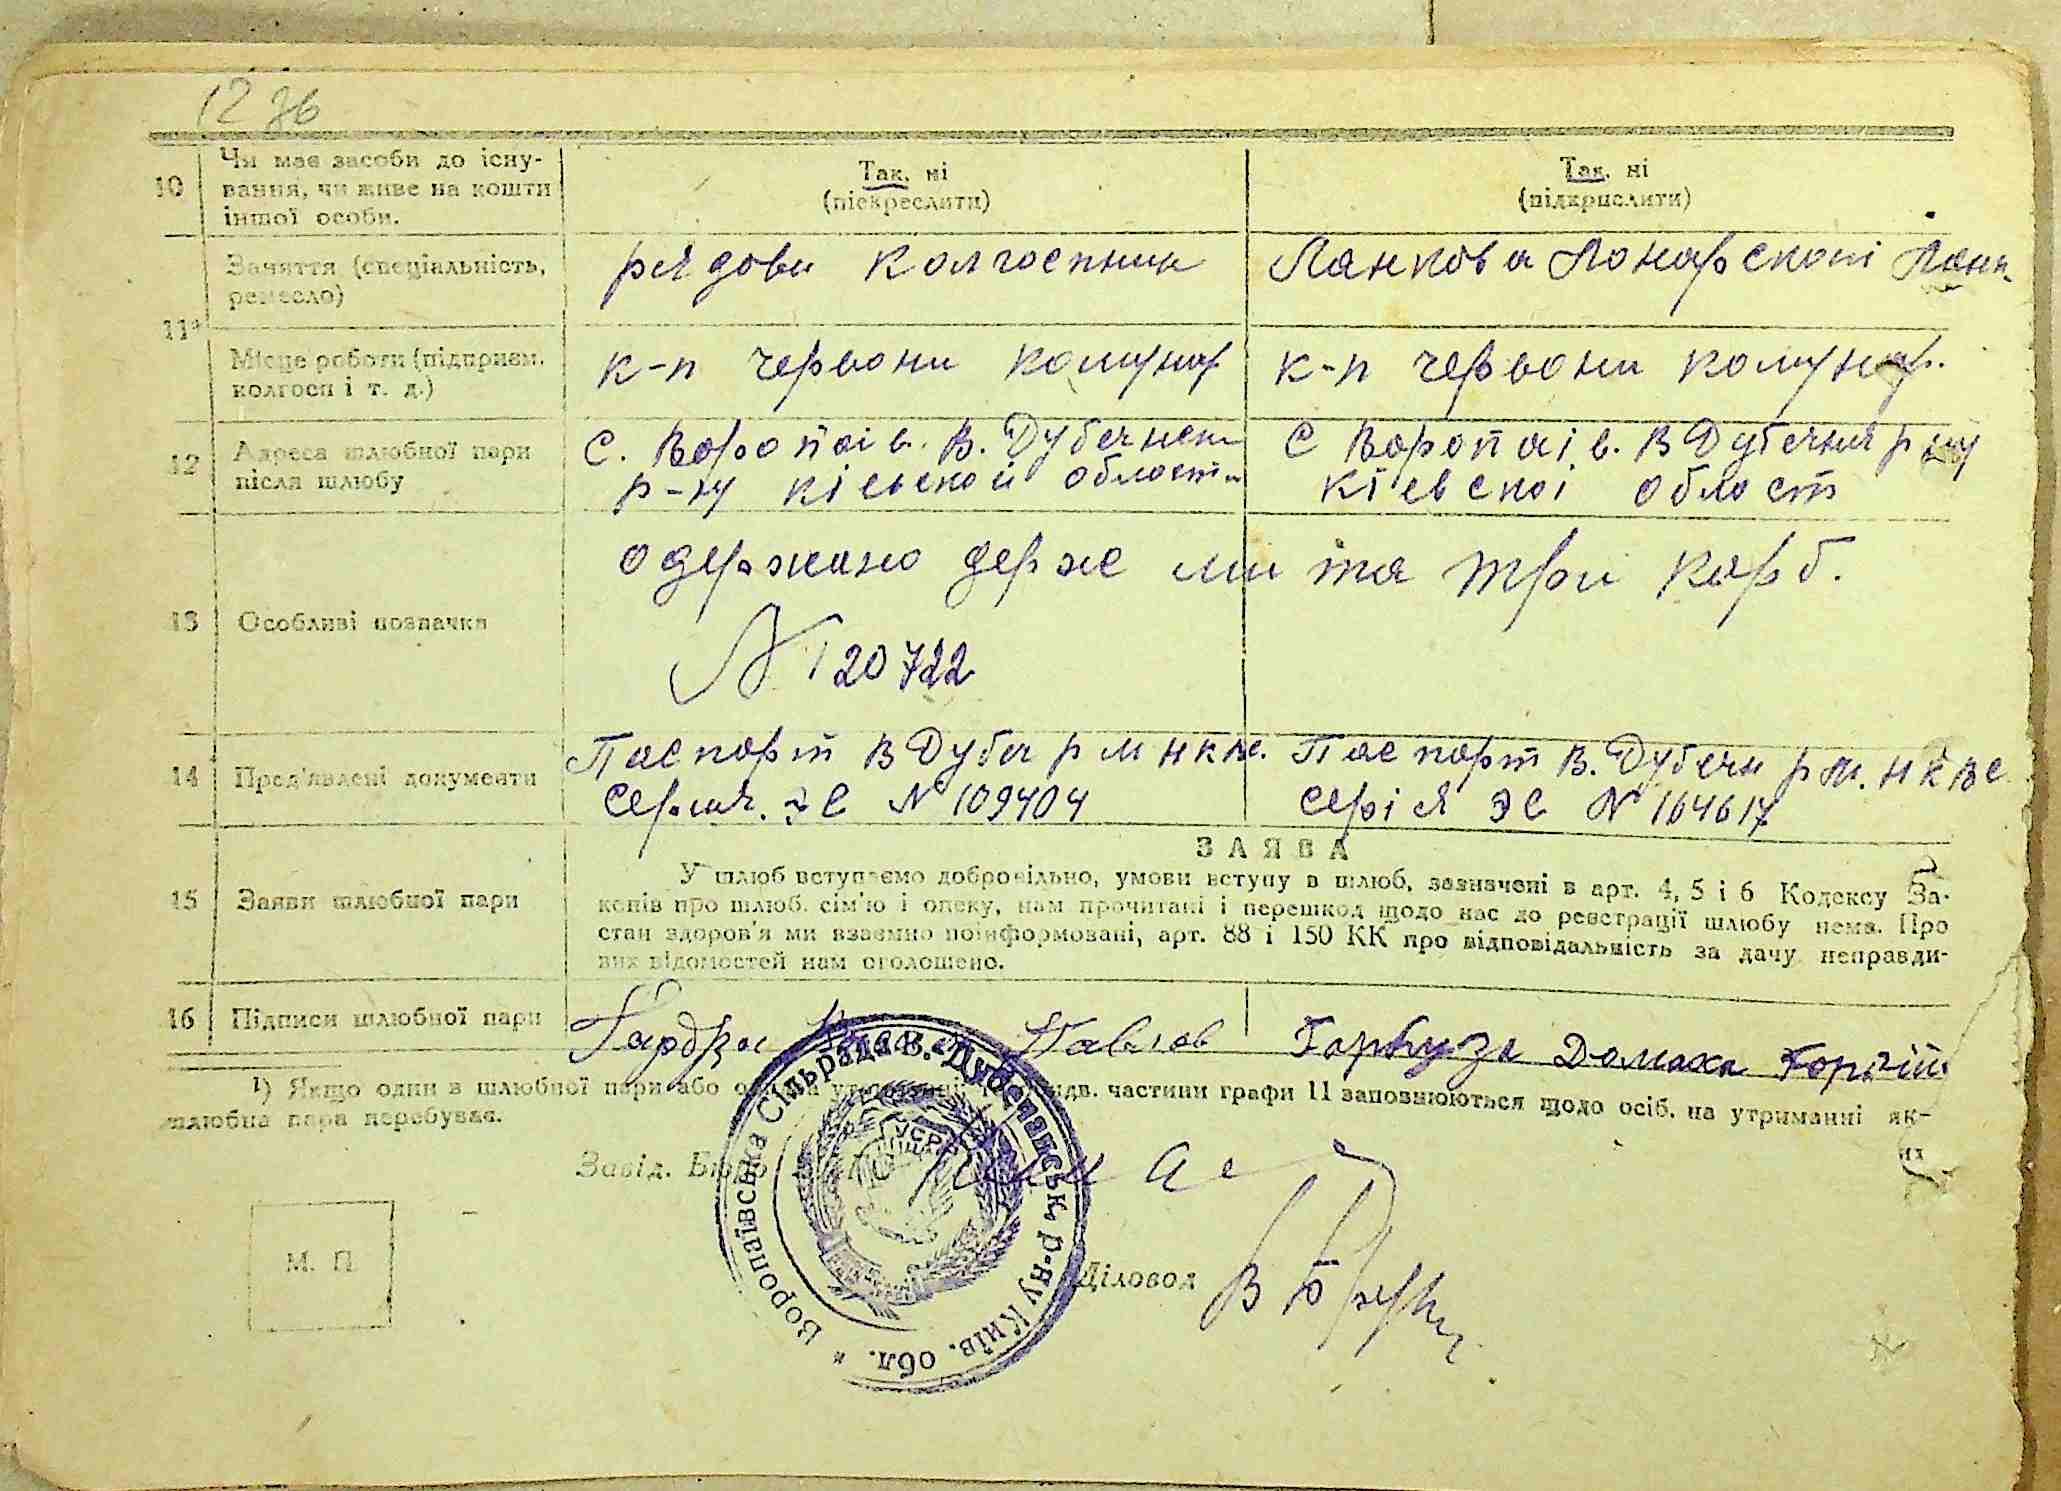 12 зв
10 Чи має засоби до існу-
вання, чи живе на кошти
іншої особи.
Так, ні
(підкреслити)
Так, ні
(підкрислити)
11¹
Заняття (спеціальність,
ремесло)
рядови колгоспник
Ланкова
Місце роботи (підприєм.
колгосп і т. д.)
к-п червони комунар
к-п червони комунар.
12 Адреса шлюбної пари
після шлюбу
С. Воропаів. В. Дубечнски
р-ну кіевской области
С Воропаів. В Дубечня р ну
Кіевскоі област
13 Особливі позначки
одержано держ мита три карб.
N 120722
14 Пред'явлені документи
Паспорт В Дубеч р м нквс.
Серия. ЭС N 109404
Паспорт В. Дубечн р м. нквс
Серія ЭС N 164617
15 Заяви шлюбної пари
ЗАЯВА
У шлюб вступаємо добровільно, умови вступу в шлюб, зазначені в арт. 4, 5 і 6 Кодексу За-
конів про шлюб. сім'ю і опеку, нам прочитані і перешкод щодо нас до реєстрації шлюбу нема. Про
стан здоров'я ми взаємно поінформовані, арт. 88 і 150 КК про відповідальність за дачу неправди-
вих відомостей нам оголошено.
16 Підписи шлюбної пари
Павлов
Гарбуза Домаха
¹) Якщо один в шлюбної пари або частини графи 11 заповнюються щодо осіб, на утриманні як-
их
шлюбна пара перебуває.
Завід. Бюро
М. П.
Діловод
Воропаївська Сільрада В.-Дубечанськ. р-ну Київ. обл. *
УСРР